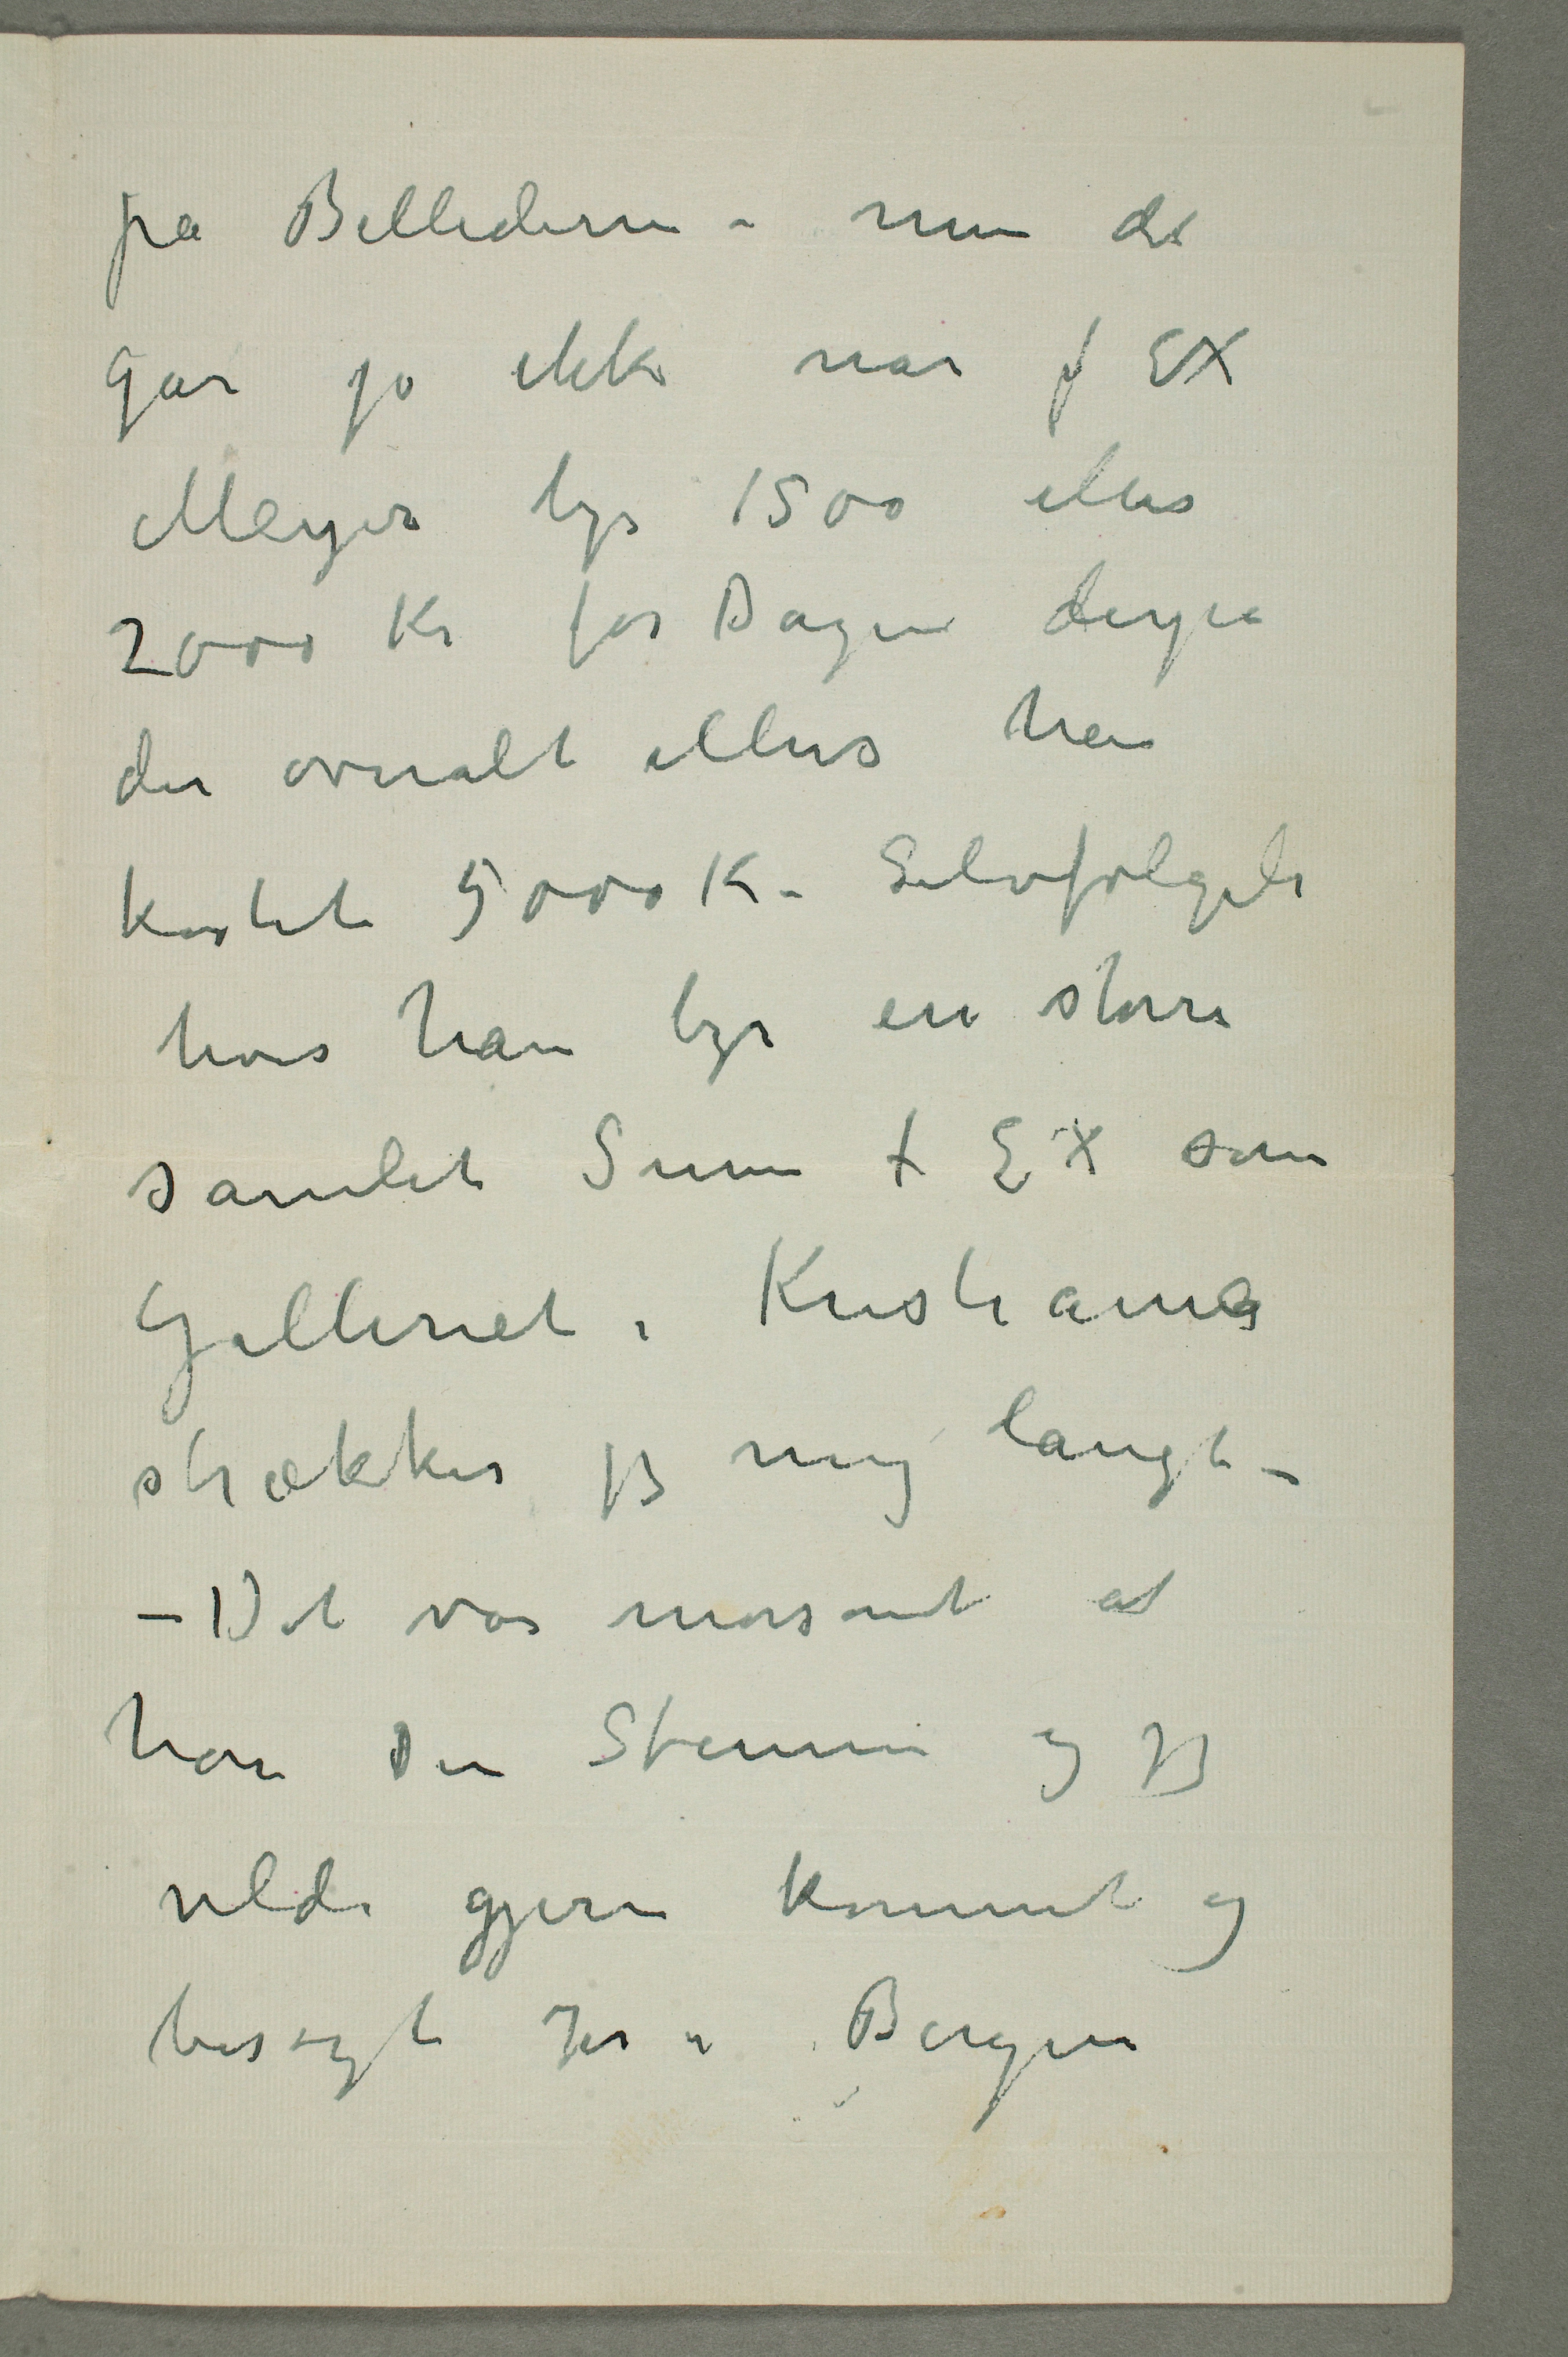 på Billederne – men det
går jo ikke når f EX
Meyer byr 1500 eller
2000 Kr for Dagen derpå
der overalt ellers har
kostet 5000 K – Selvfølgelig
hvis han byr en større
samlet Sum f EX som
Galleriet i Kristiania
strækker jeg mig langt –
– Det var morsomt at
høre Din Stemme og jeg
vilde gjerne kommet og
besøgt Jer i Bergen